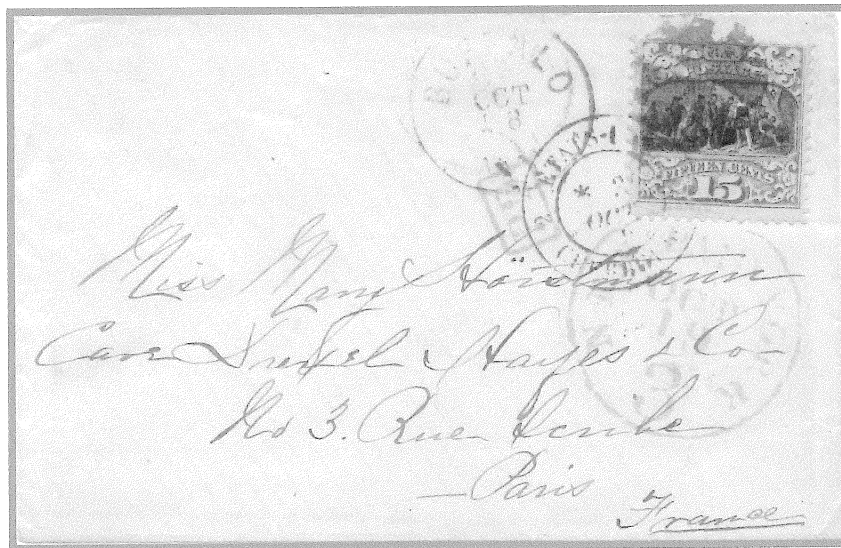 BUFFALO
OCT
U.S.
POSTAGE
FIFTEEN CENTS
15
2 ETATS-
OCT
Miss Mary Horstmann
Care Drexel Hayes & Co
No 3. Rue Scribe
Paris
France